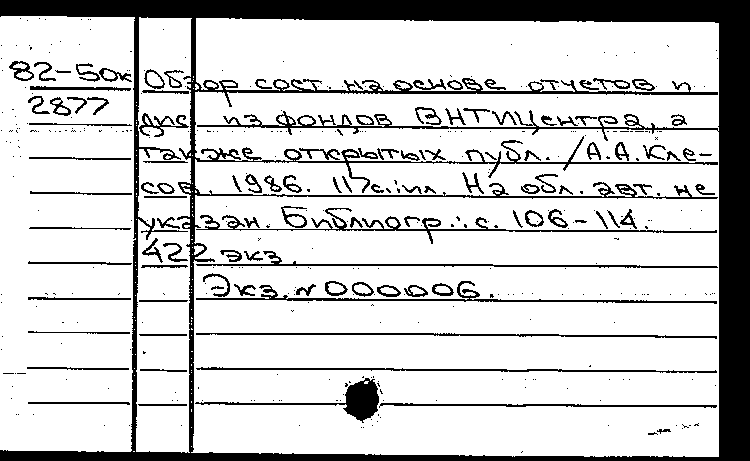 82-50к Обзор сост. на основе отчетов и
2877 дис. из фондов ВНТИЦентра, а
также открытых публ. / А.А. Кле-
сов. 1986. 117с.: ил. На обл. авт. не
указан. Библиогр.: с. 106-114.
422 экз.
Экз. N000006.